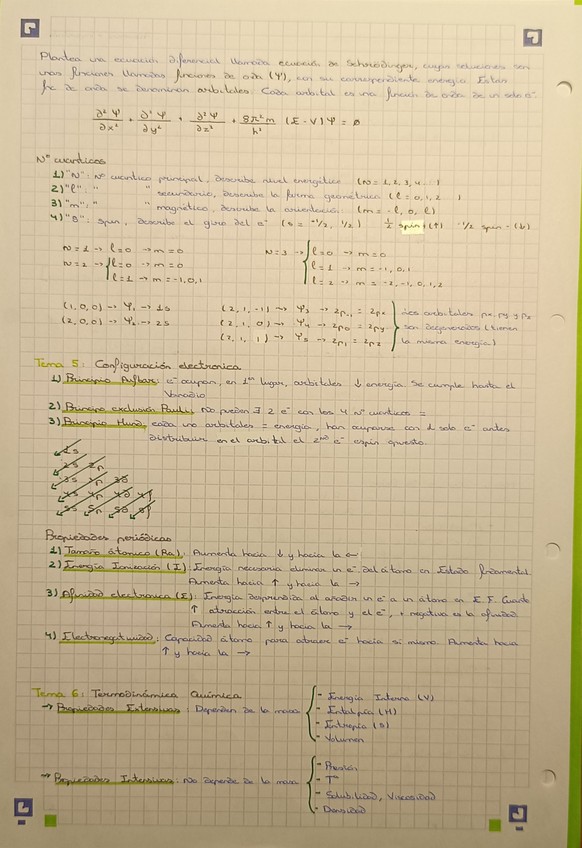 Plantea una ecuación diferencial llamada ecuación de Schrodinger, cuyas soluciones son
unas funciones llamadas funciones de onda (Ψ), con su correspondiente energía. Estas
de onda se denominan orbitales. Cada orbital es una función de onda de un solo e⁻
∂²Ψ/∂x² + ∂²Ψ/∂y² + ∂²Ψ/∂z² + 8π²m/h² (E - V) Ψ = 0
Nº cuánticos
1) "N": Nº cuántico principal, describe nivel energético (N = 1, 2, 3, 4...)
2) "l": " " secundario, describe la forma geométrica (l = 0, 1, 2 )
3) "m": " " magnético, describe la orientación (m = -l, 0, l)
4) "S": spin, describe el giro del e⁻ (s = -1/2, 1/2) 1/2 spin + (↑) -1/2 spin - (↓)
N = 1 → l = 0 → m = 0
N = 2 → { l = 0 → m = 0
l = 1 → m = -1, 0, 1
N = 3 → { l = 0 → m = 0
l = 1 → m = -1, 0, 1
l = 2 → m = -2, -1, 0, 1, 2
(1, 0, 0) → Ψ₁ → 1s
(2, 0, 0) → Ψ₂ → 2s
(2, 1, -1) → Ψ₃ → 2p₋₁ = 2px
(2, 1, 0) → Ψ₄ → 2p₀ = 2py
(2, 1, 1) → Ψ₅ → 2p₁ = 2pz
Los orbitales px, py y pz
son degenerados (tienen
la misma energía)
Tema 5: Configuración electronica
1) Principio Aufbau: e⁻ ocupan, en 1er lugar, orbitales ↓ energía. Se cumple hasta el
Vanadio
2) Principio exclusión Pauli: No pueden ∃ 2 e⁻ con los 4 Nº cuánticos =
3) Principio Hund: cada uno orbitales = energía, han ocuparse con 1 solo e⁻ antes
distribuir en el orbital el 2º e⁻ espín opuesto.
1s
2s 2p
3s 3p 3d
4s 4p 4d 4f
5s 5p 5d 5f
Propiedades periódicas
1) Tamaño átomico (Ra): Aumenta hacia ↓ y hacia la ←
2) Energía Ionización (I): Energía necesaria eliminar un e⁻ del átomo en Estado fundamental
Aumenta hacia ↑ y hacia la →
3) Afinidad electronica (E): Energía desprendida al añadir un e⁻ a un átomo en E. F. Cuanto
↑ atracción entre el átomo y el e⁻, + negativa es la afinidad
Aumenta hacia ↑ y hacia la →
4) Electronegatividad: Capacidad átomo para atraer e⁻ hacia sí mismo. Aumenta hacia
↑ y hacia la →
Tema 6: Termodinámica Química
→ Propiedades Extensivas: Dependen de la masa
- Energía Interna (U)
- Entalpía (H)
- Entropía (S)
- Volumen
→ Propiedades Intensivas: No depende de la masa
- Presión
- Tª
- Solubilidad, Viscosidad
- Densidad